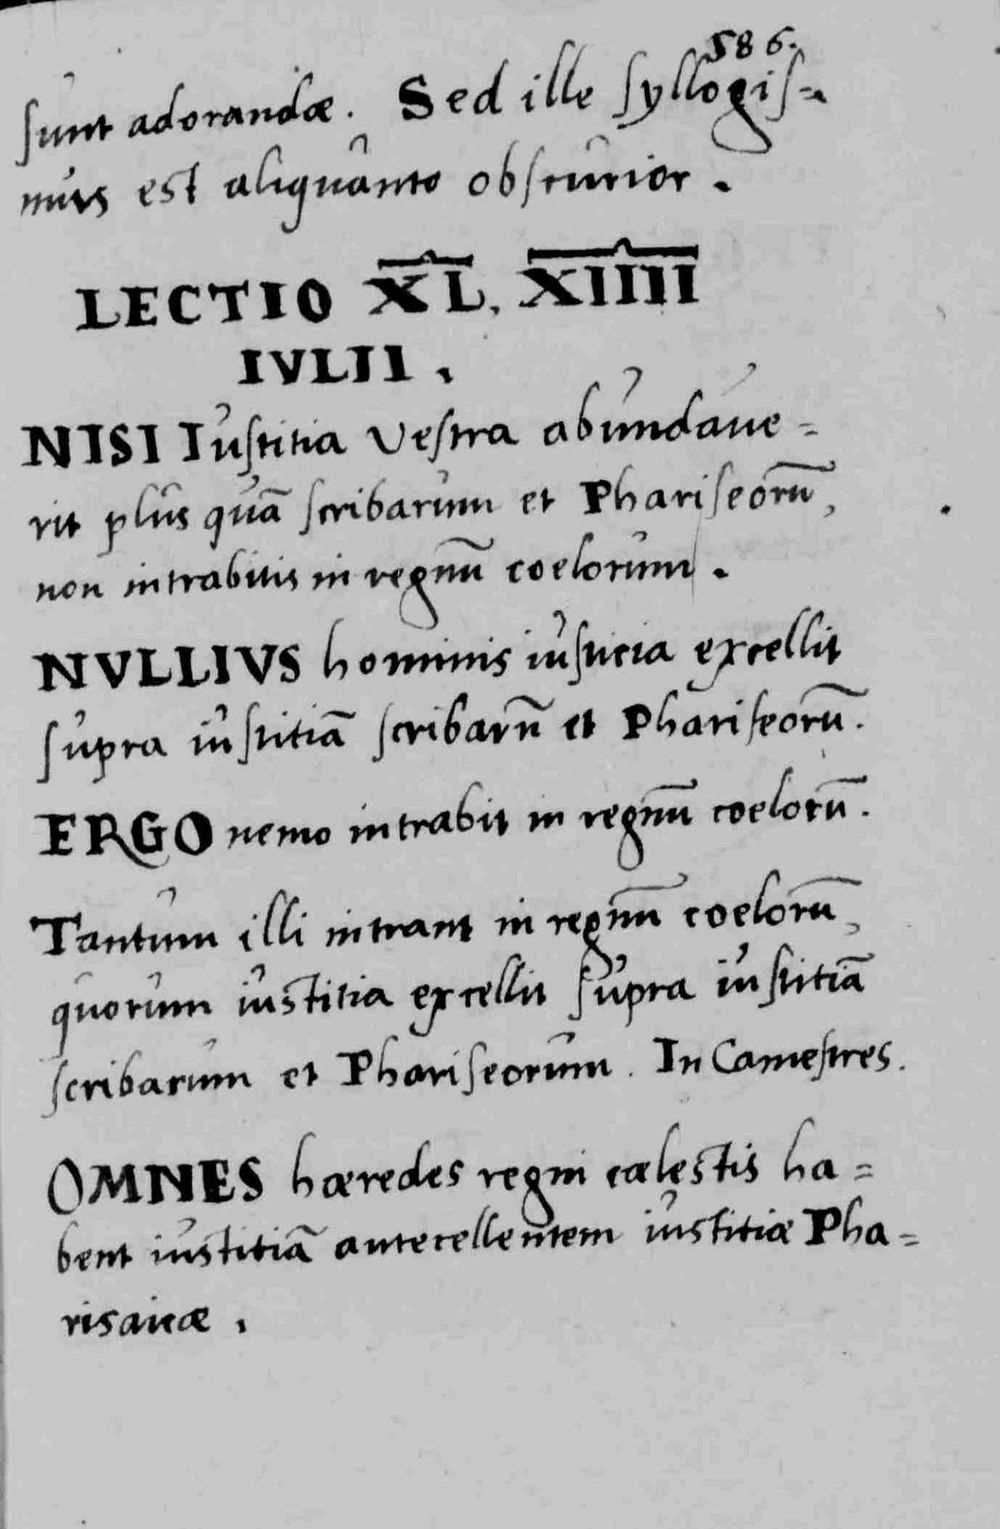 586.
sunt adorandæ. Sed ille syllogis=
mus est aliquanto obscurior.
LECTIO XL. XIIII
IVLII.
NISI Iustitia vestra abundaue=
rit plus quā scribarum et Phariseorū,
non intrabitis in regnū coelorum.
NVLLIVS hominis iusticia excellit
supra iustitiā scribarū et Phariseorū.
ERGO nemo intrabit in regnū coelorū.
Tantum illi intrant in regnū coelorū,
quorum iustitia excellit supra iustitiā
scribarum et Phariseorum. In Camestres.
OMNES hæredes regni cælestis ha=
bent iustitiā antecellentem iustitiæ Pha=
risaicæ.